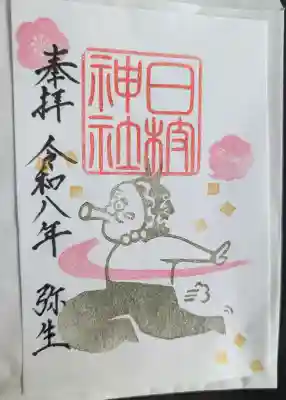 奉拝
令和八年
弥生
日枝
神社